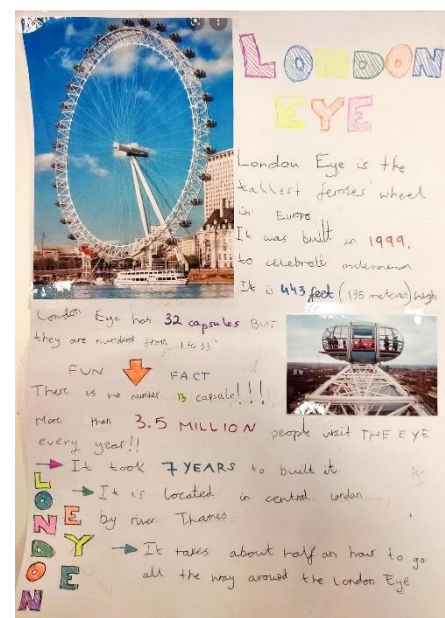 LONDON
EYE
London Eye is the
tallest ferries wheel
in Europe
It was built in 1999.
to celebrate millennium
It is 443 feet (135 metres) high
London Eye has 32 capsules BUT
they are numbered from 1 to 33
FUN FACT
There is no number 13 capsule!!!
More than 3.5 MILLION people visit THE EYE
every year!!
It took 7 YEARS to built it.
It is located in central London
by river Thames
It takes about half an hour to go
all the way around the London Eye
LONDON
EYE